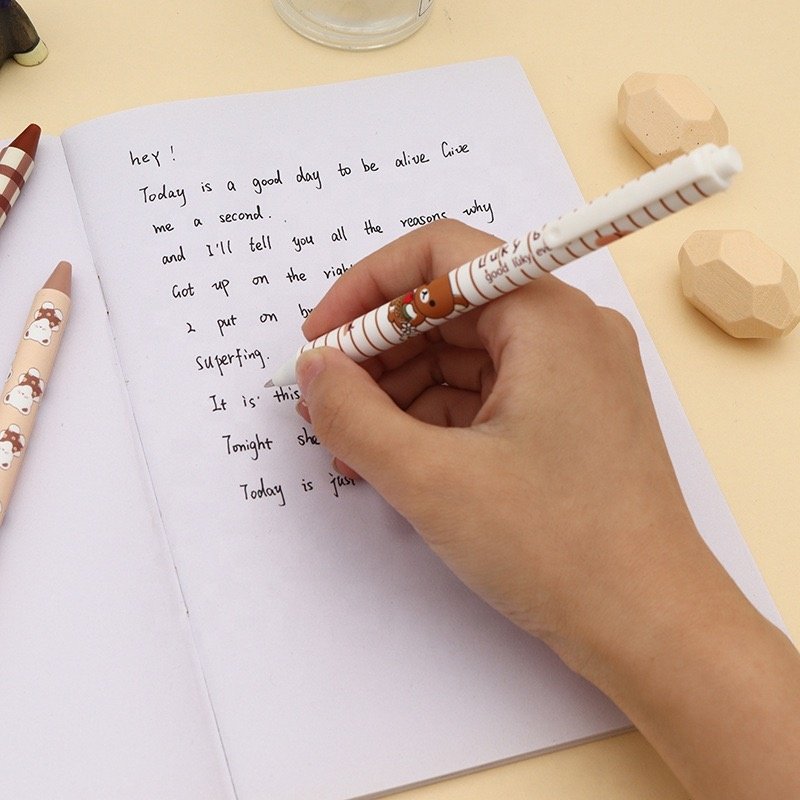 hey!
Today is a good day to be alive Give
me a second..
and I'll tell you all the reasons why
Got up on the
put on
superfing.
It is this
Tonight
Today is
Lucky
good lucky